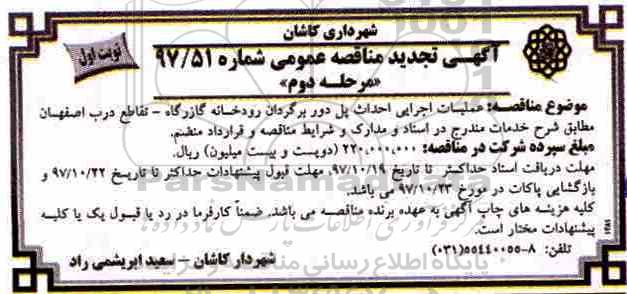 شهرداری کاشان
نوبت اول
آگهی تجدید مناقصه عمومی شماره ۹۷/۵۱
«مرحله دوم»
موضوع مناقصه: عملیات اجرایی احداث پل دور برگردان رودخانه گازرگاه - تقاطع درب اصفهان
مطابق شرح خدمات مندرج در اسناد و مدارک و شرایط مناقصه و قرارداد منضم.
مبلغ سپرده شرکت در مناقصه: ۲۲۰,۰۰۰,۰۰۰ (دویست و بیست میلیون) ریال.
مهلت دریافت اسناد حداکثر تا تاریخ ۹۷/۱۰/۱۹، مهلت قبول پیشنهادات حداکثر تا تاریخ ۹۷/۱۰/۲۲ و
بازگشایی پاکات در مورخ ۹۷/۱۰/۲۳ می باشد.
کلیه هزینه های چاپ آگهی به عهده برنده مناقصه می باشد. ضمناً کارفرما در رد یا قبول یک یا کلیه
پیشنهادات مختار است.
تلفن: ۸-۵۵۴۴۰۰۵۵ (۰۳۱)
شهردار کاشان - سعید ابریشمی راد
ParsNamadData
پایگاه اطلاع رسانی مناقصه